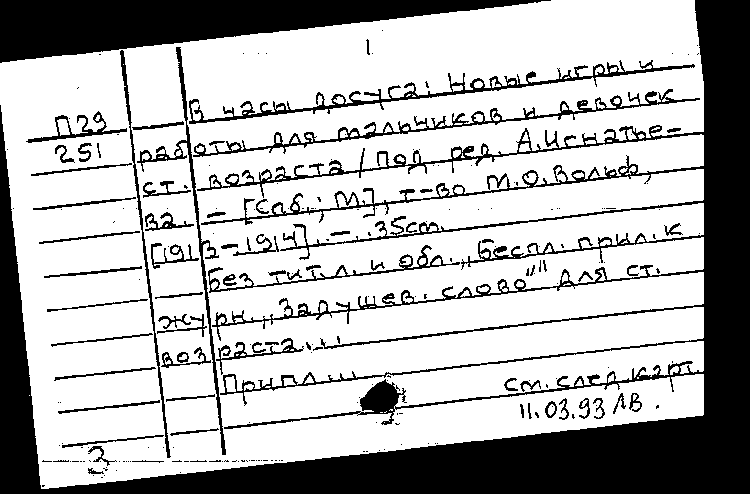 1
П29 В часы досуга: Новые игры и
251 работы для мальчиков и девочек
ст. возраста / Под ред. А.Игнатье-
ва. – [Спб.; М.], т-во М.О.Вольф,
[1913–1914]. – .35см.
Без тит.л. и обл. „Беспл. прил. к
журн. „Задушев. слово"" для ст.
возраста...
Припл...
см.след карт.
11.03.93 ЛВ.
3